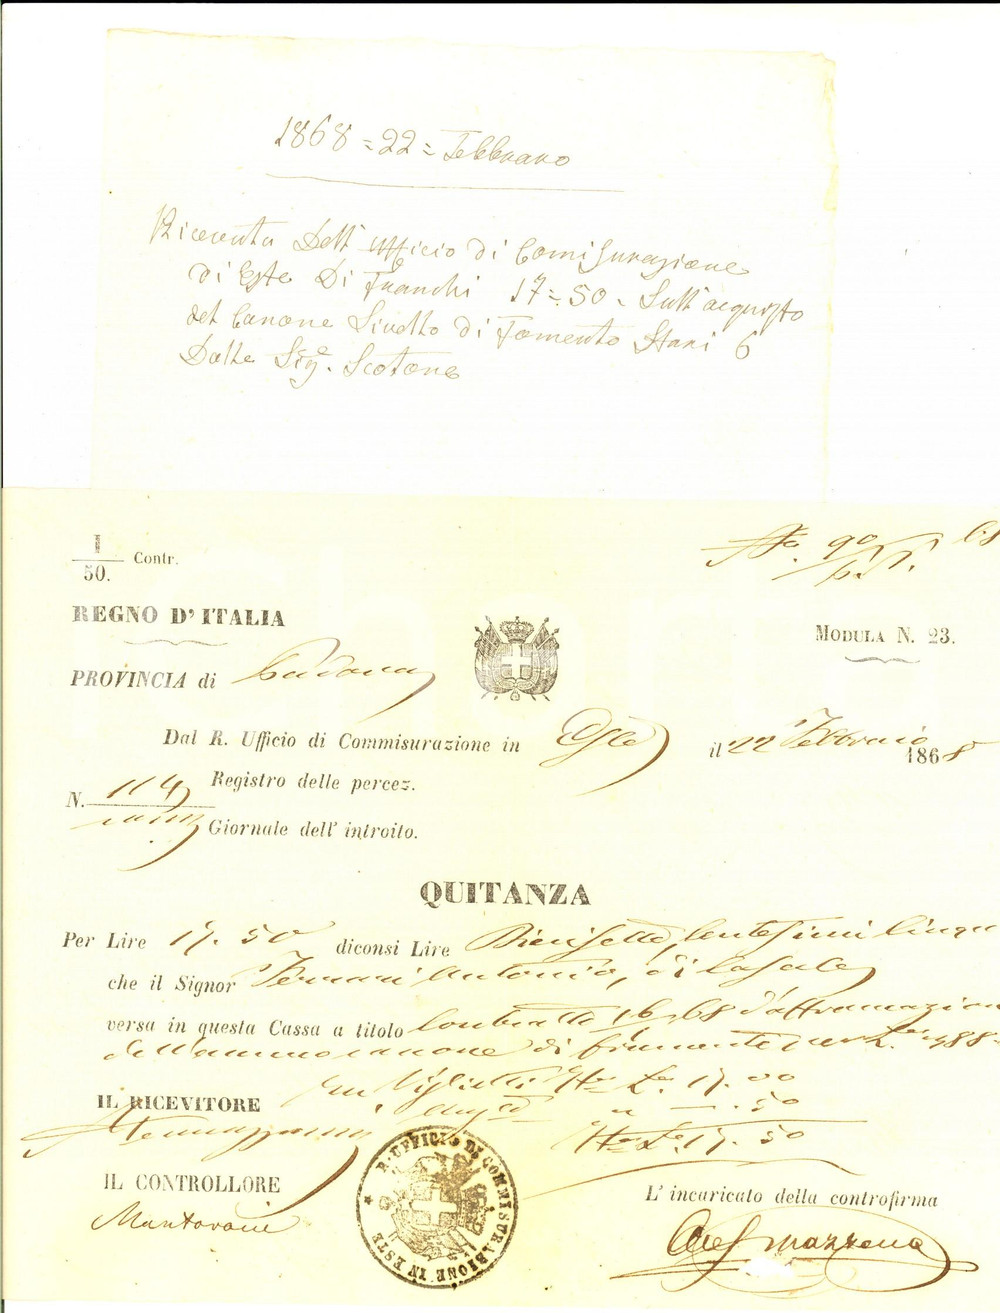 1868 = 22 = Febbraro
Riceuta Dell' ufficio di Comisurazione
di Este Di Franchi 17=50 - Sull' acquisto
del Canone Livello di Formento Stari 6
Dalle Sig.e Scotone
1/50. Contr.
REGNO D'ITALIA
MODULA N. 23.
PROVINCIA di Padova
Dal R. Ufficio di Commisurazione in Este il 22 Febbraio 1868
Registro delle percez.
N. 114
Giornale dell' introito.
QUITANZA
Per Lire 17. 50 diconsi Lire Diecisette, Centesimi Cinqu
che il Signor Ferrari Antonio, di Casale
versa in questa Cassa a titolo Contratto 16.68 d'affrancazion
dell'annuo canone di frumento per L. 988
In Viglietti L. 17. 00
IL RICEVITORE
" - . 50
L. 17. 50
IL CONTROLLORE
Mantovani
R. UFFICIO DI COMMISURAZIONE IN ESTE
L' incaricato della controfirma